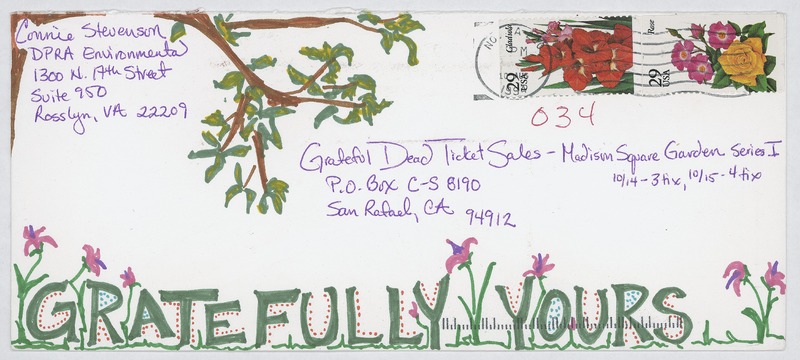 Connie Stevenson
DPRA Environmental
1300 N. 17th Street
Suite 950
Rosslyn, VA 22209
Gladiola
29
USA
Rose
29
USA
034
Grateful Dead Ticket Sales - Madison Square Garden Series I
10/14 - 3 tix, 10/15 - 4 tix
P.O. Box C-S 8190
San Rafael, CA 94912
GRATEFULLY YOURS